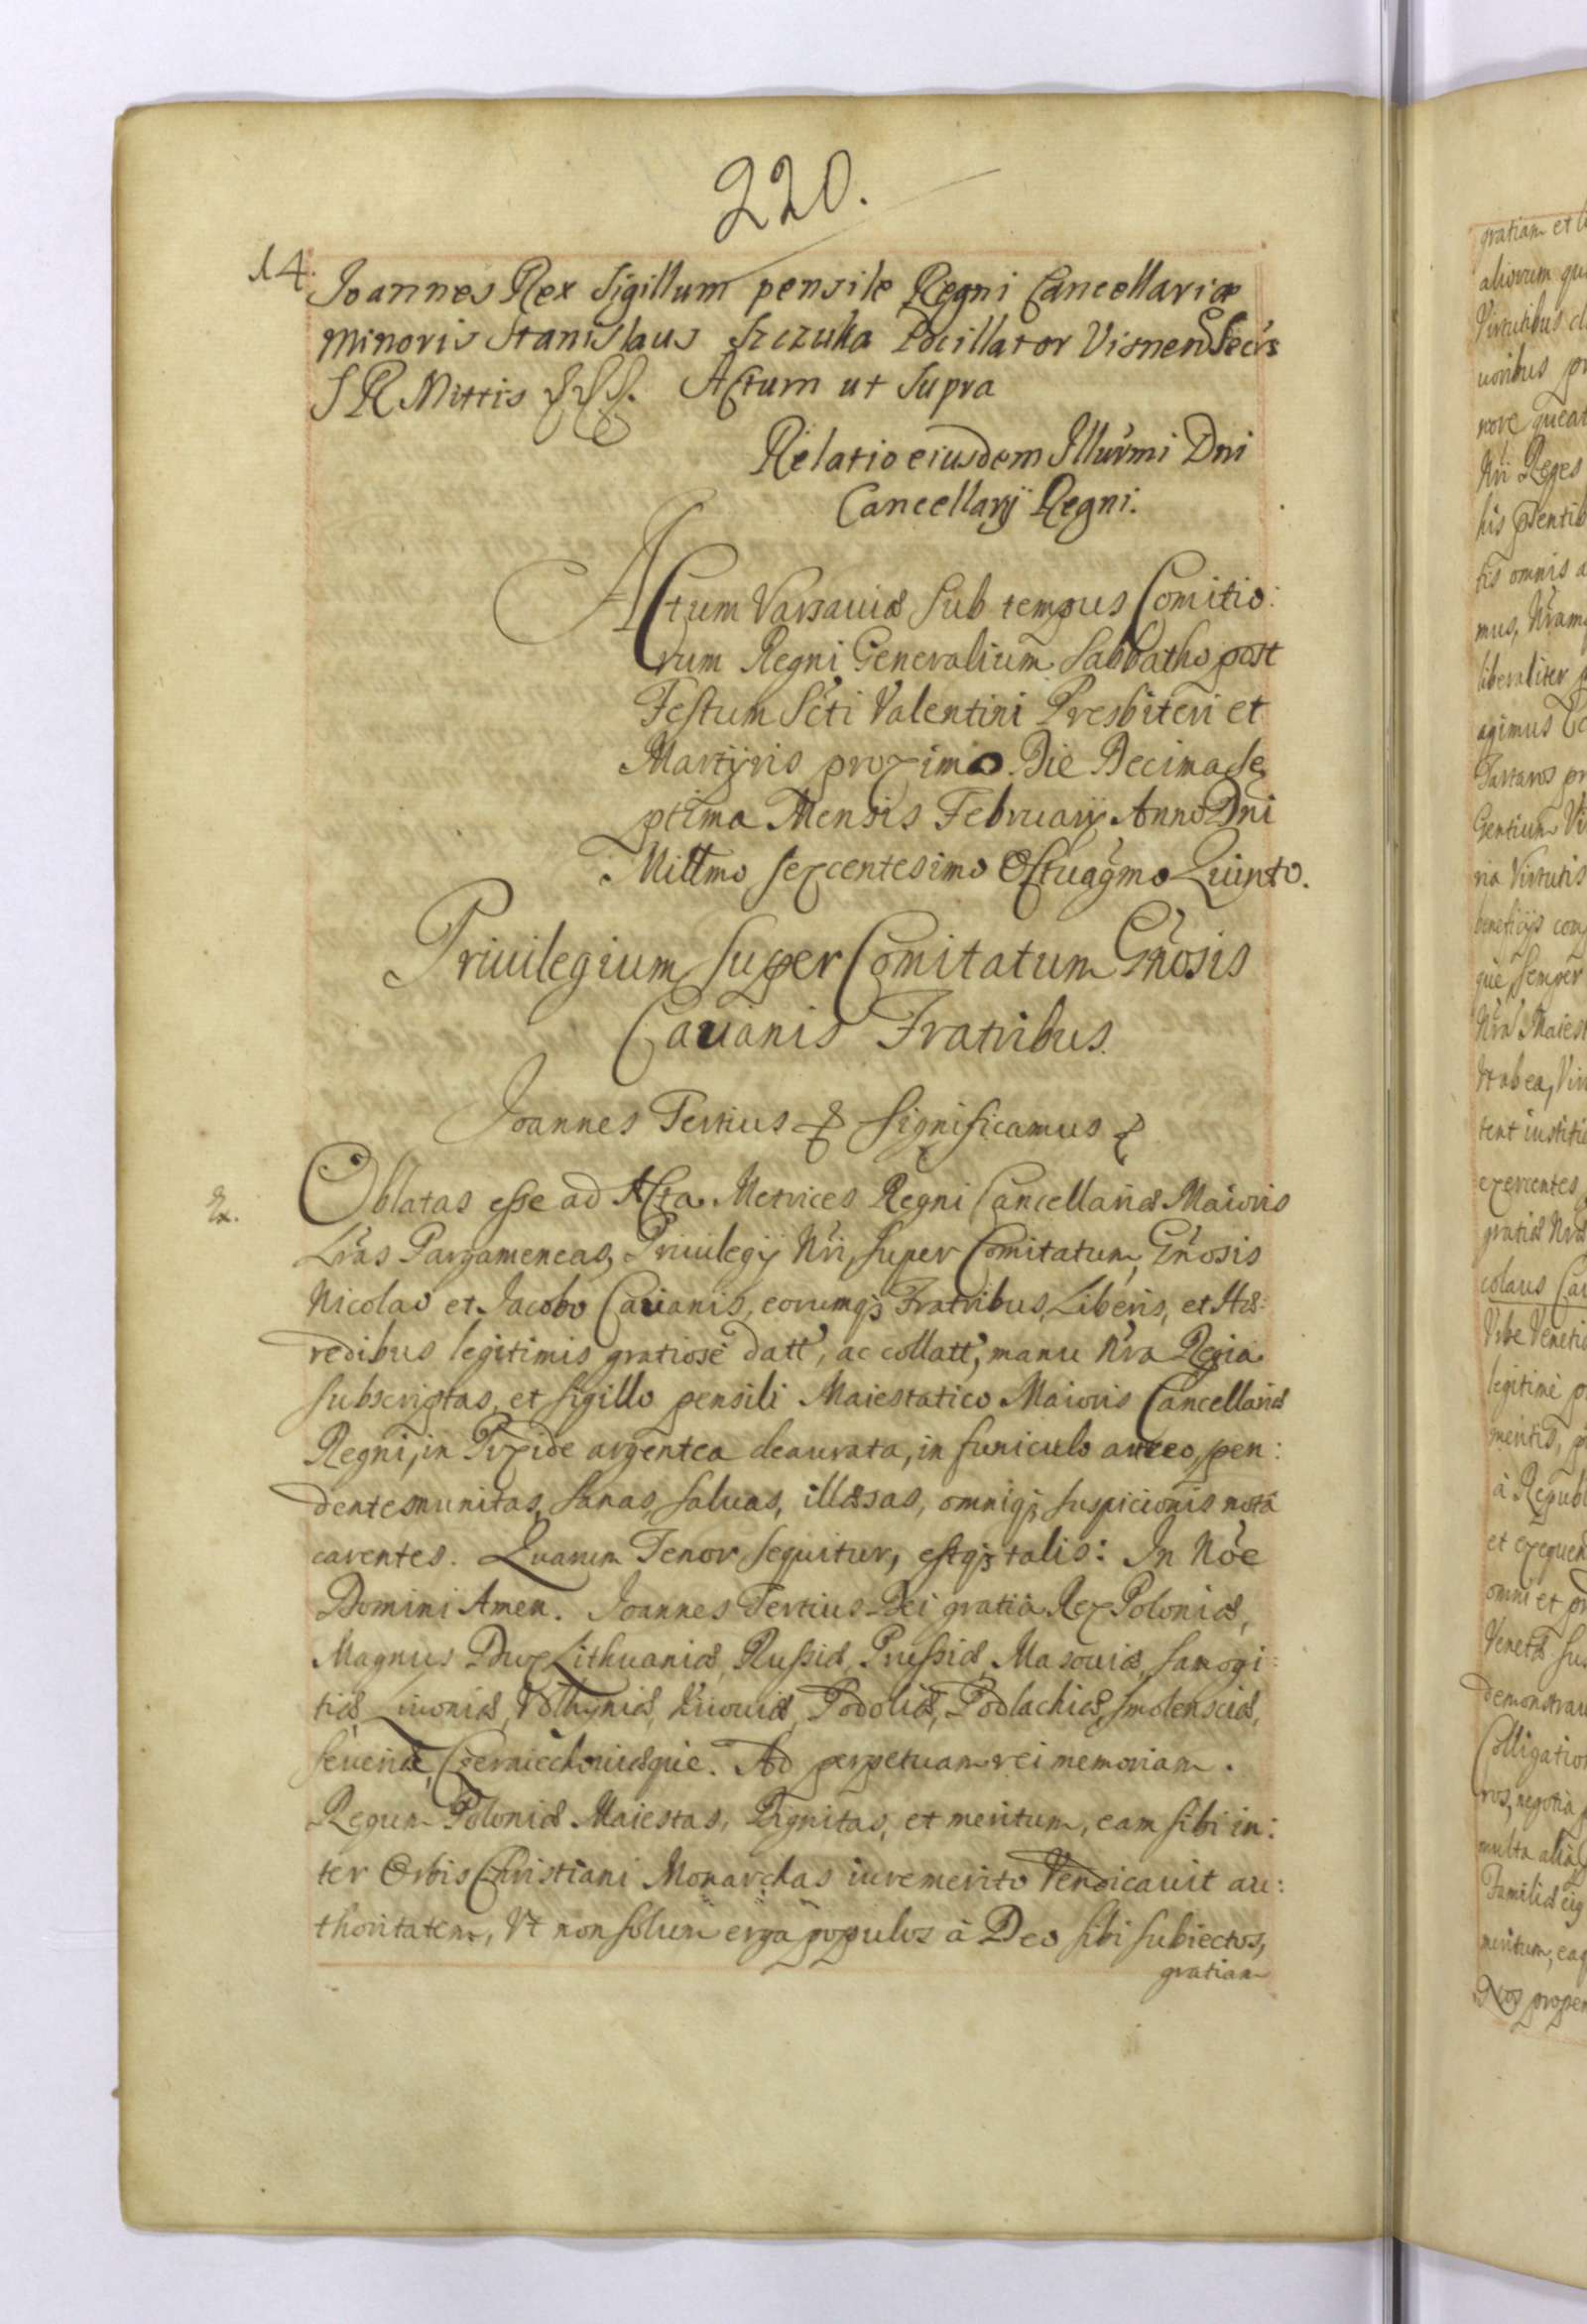 220.
14.
Joannes Rex Sigillum pensile Regni Cancellariæ
Minoris Stanislaus Szczuka Pocillator Visnen Secrs
S R Mittis Actum ut Supra
Relatio eiusdem Illurmi Dni
Cancellarij Regni.
Actum Varsauiæ Sub tempus Comitio:
rum Regni Generalium Sabbatho post
Festum Scti Valentini Presbiteri et
Martyris proximo. Die Decima Se
ptima Mensis Februarij Anno Dni
Millmo sexcentesimo Octuagmo Quinto.
Priuilegium Super Comitatum Gnosis
Cauanis Fratribus.
Joannes Tertius & Significamus &
Oblatas esse ad Acta Metrices Regni Cancellariæ Maioris
Lras Pargameneas, Priuilegij Nri, super Comitatum, Gnosis
Nicolao et Jacobo Cauanis, eorumq; Fratribus, Liberis, et Hæ:
redibus legitimis gratiose datt, ac collatt, manu Nra Regia
subscriptas, et sigillo pensili Maiestatico Maioris Cancellariæ
Regni, in Pixide argentea deaurata, in funiculo aureo, pen:
dente munitas, sanas, saluas, illæsas, omniq; suspicionis nota
carentes. Quarum Tenor sequitur, estq; talis: In Noe
Domini Amen. Joannes Tertius Dei gratia Rex Poloniæ,
Magnus Dux Lithuaniæ, Russiæ, Prussiæ, Masouiæ, Samogi:
tiæ, Liuoniæ, Volhyniæ, Kiiouiæ, Podoliæ, Podlachiæ, Smolensciæ,
Seueriæ, Czerniechouiæque. Ad perpetuam rei memoriam.
Regum Poloniæ Maiestas, Dignitas, et meritum, eam sibi in:
ter Orbis Christiani Monarchas iure merito Vendicauit au:
thoritatem, Vt non solum erga populos à Deo sibi subiectos,
gratiam